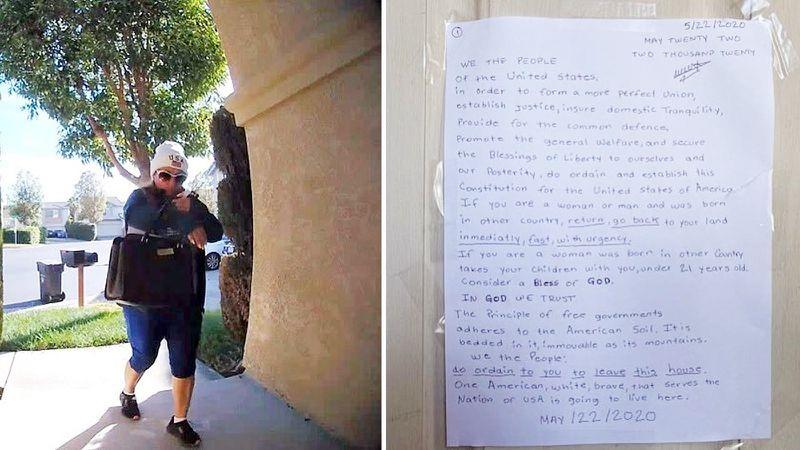 USA
①
5/22/2020
MAY TWENTY TWO
TWO THOUSAND TWENTY
WE THE PEOPLE
Of the United States,
in order to form a more perfect Union,
establish Justice, insure domestic Tranquility,
Provide for the common defence,
Promote the general Welfare, and secure
the Blessings of Liberty to ourselves and
our Posterity, do ordain and establish this
Constitution for the United States of America.
If you are a woman or man and was born
in other country, return, go back to your land
inmediatly, fast, with urgency.
If you are a woman was born in other Country
takes your children with you, under 21 years old.
Consider a Bless of GOD.
IN GOD WE TRUST
The Principle of free governments
adheres to the American Soil. It is
bedded in it, immovable as its mountains.
We the People:
do ordain to you to leave this house.
One American, white, brave, that serves the
Nation or USA is going to live here.
MAY /22/2020